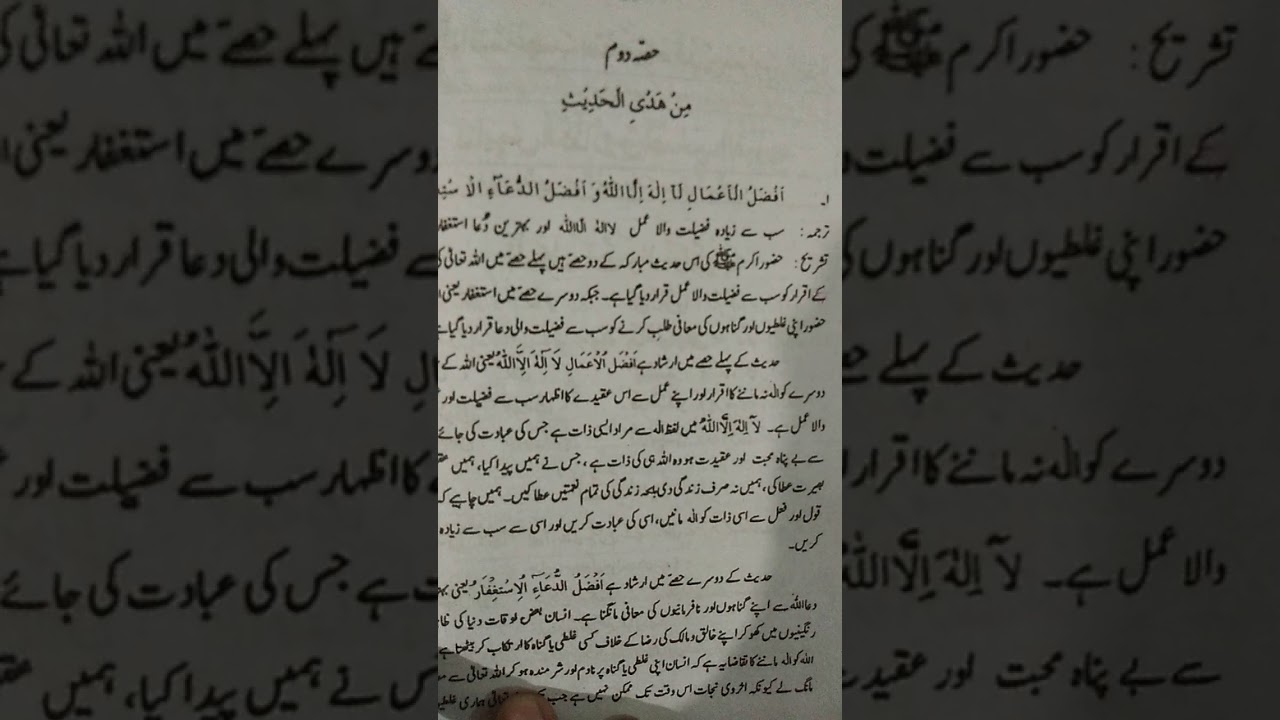 حصہ دوم
مِنْ هَدْيِ الْحَدِيْثِ
۱۔ اَفْضَلُ الْاَعْمَالِ لَآ اِلٰهَ اِلَّا اللّٰهُ وَ اَفْضَلُ الدُّعَآءِ
ترجمہ: سب سے زیادہ فضیلت والا عمل لا الہ الا اللہ اور بہترین دُعا استغفار
تشریح: حضور اکرم ﷺ کی اس حدیث مبارکہ کے دو حصے ہیں پہلے حصے میں اللہ تعالیٰ
کے اقرار کو سب سے فضیلت والا عمل قرار دیا گیا ہے۔ جبکہ دوسرے حصے میں استغفار یعنی
حضور اپنی غلطیوں اور گناہوں کی معافی طلب کرنے کو سب سے فضیلت والی دعا قرار دیا گیا
حدیث کے پہلے حصے میں ارشاد ہے اَفْضَلُ الْاَعْمَالِ لَآ اِلٰهَ اِلَّا اللّٰهُ یعنی اللہ کے
دوسرے کو الٰہ نہ ماننے کا اقرار اور اپنے عمل سے اس عقیدے کا اظہار سب سے فضیلت اور
والا عمل ہے۔ لَآ اِلٰهَ اِلَّا اللّٰهُ میں لفظ الٰہ سے مراد ایسی ذات ہے جس کی عبادت کی جائے
سے بے پناہ محبت اور عقیدت ہو وہ اللہ ہی کی ذات ہے، جس نے ہمیں پیدا کیا، ہمیں
بصیرت عطا کی، ہمیں نہ صرف زندگی دی بلکہ زندگی کی تمام نعمتیں عطا کیں۔ ہمیں چاہیے کہ
قول اور فعل سے اسی ذات کو الٰہ مانیں، اسی کی عبادت کریں اور اسی سے سب سے زیادہ
کریں۔
حدیث کے دوسرے حصے میں ارشاد ہے اَفْضَلُ الدُّعَآءِ اَلْاِسْتِغْفَارُ یعنی
دعا اللہ سے اپنے گناہوں اور نافرمانیوں کی معافی مانگنا ہے۔ انسان بعض اوقات دنیا کی
رنگینیوں میں کھو کر اپنے خالق و مالک کی رضا کے خلاف کسی غلطی یا گناہ کا ارتکاب کر بیٹھتا ہے
اللہ کو الٰہ ماننے کا تقاضا یہ ہے کہ انسان اپنی غلطی یا گناہ پر نادم اور شرمندہ ہو کر اللہ تعالیٰ سے
مانگ لے کیونکہ اخروی نجات اس وقت تک ممکن نہیں ہے جب تعالیٰ ہماری